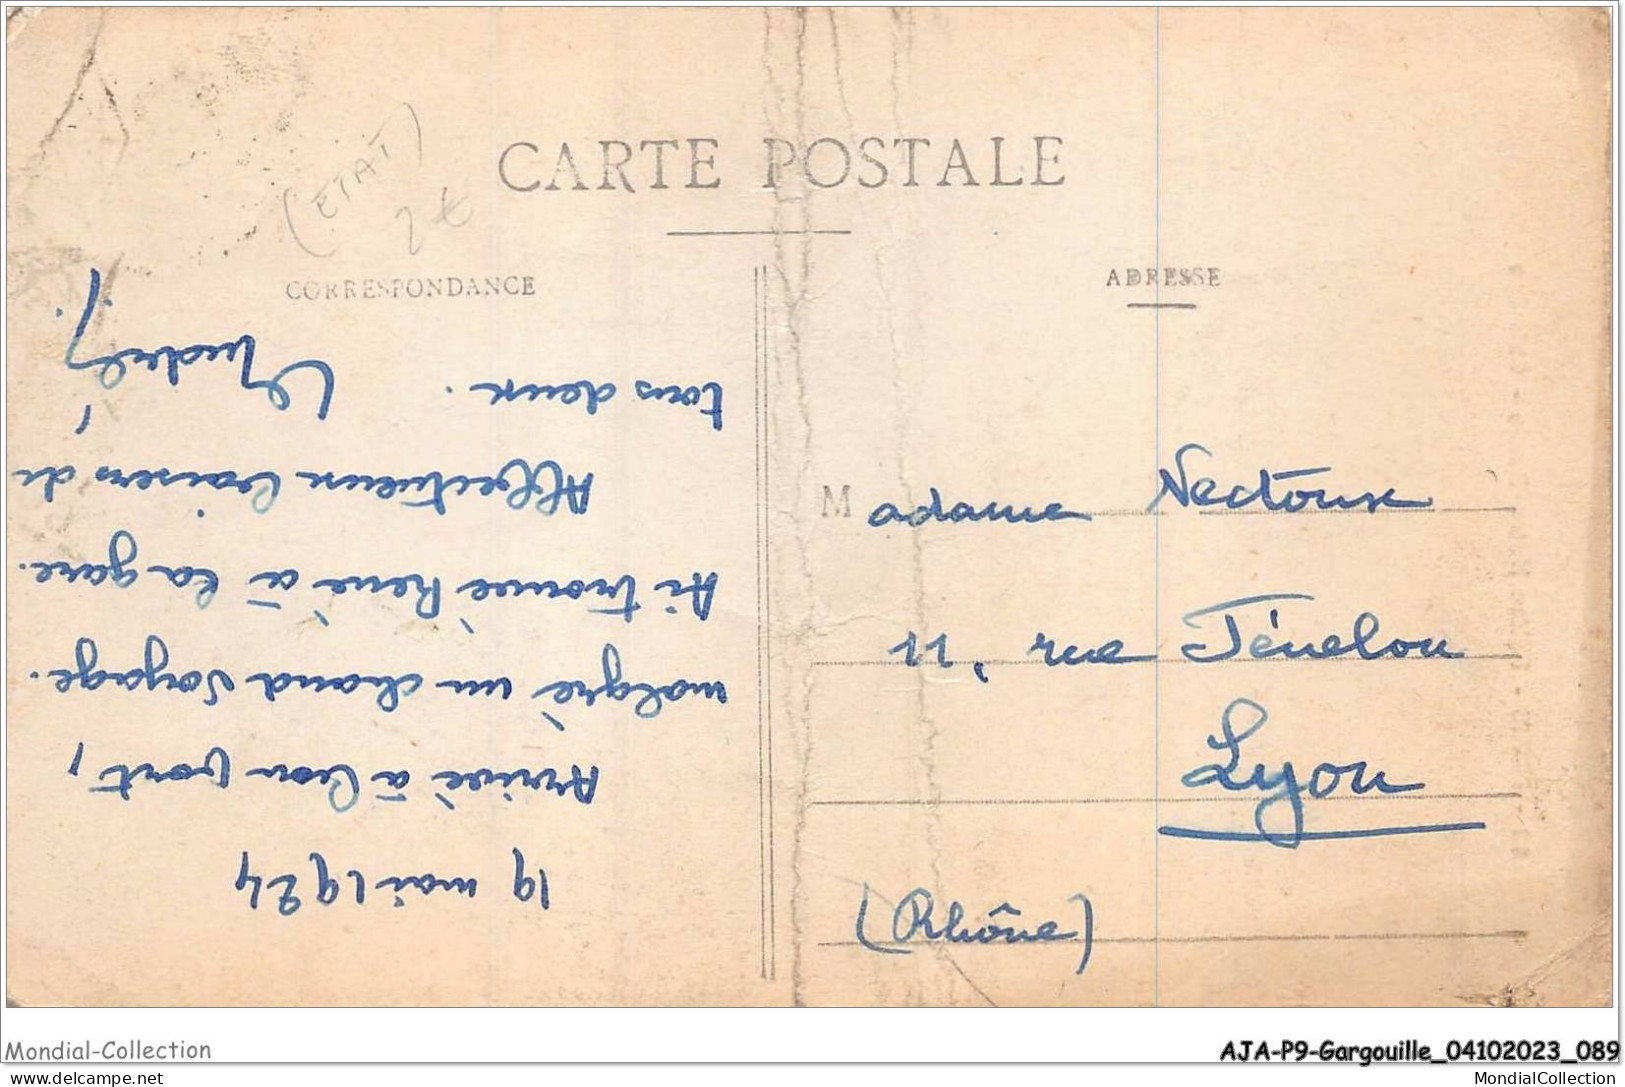 CARTE POSTALE
(ETAT)
2 €
CORRESPONDANCE
19 mai 1924
Arrivé à bon port,
malgré un chaud voyage.
Ai trouvé René à la gare.
Affectueux baisers de
tous deux.
ADRESSE
Madame Nectoux
11, rue Fénelon
Lyon
(Rhône)
Mondial-Collection
AJA-P9-Gargouille_04102023_089
delcampe.net
MondialCollection